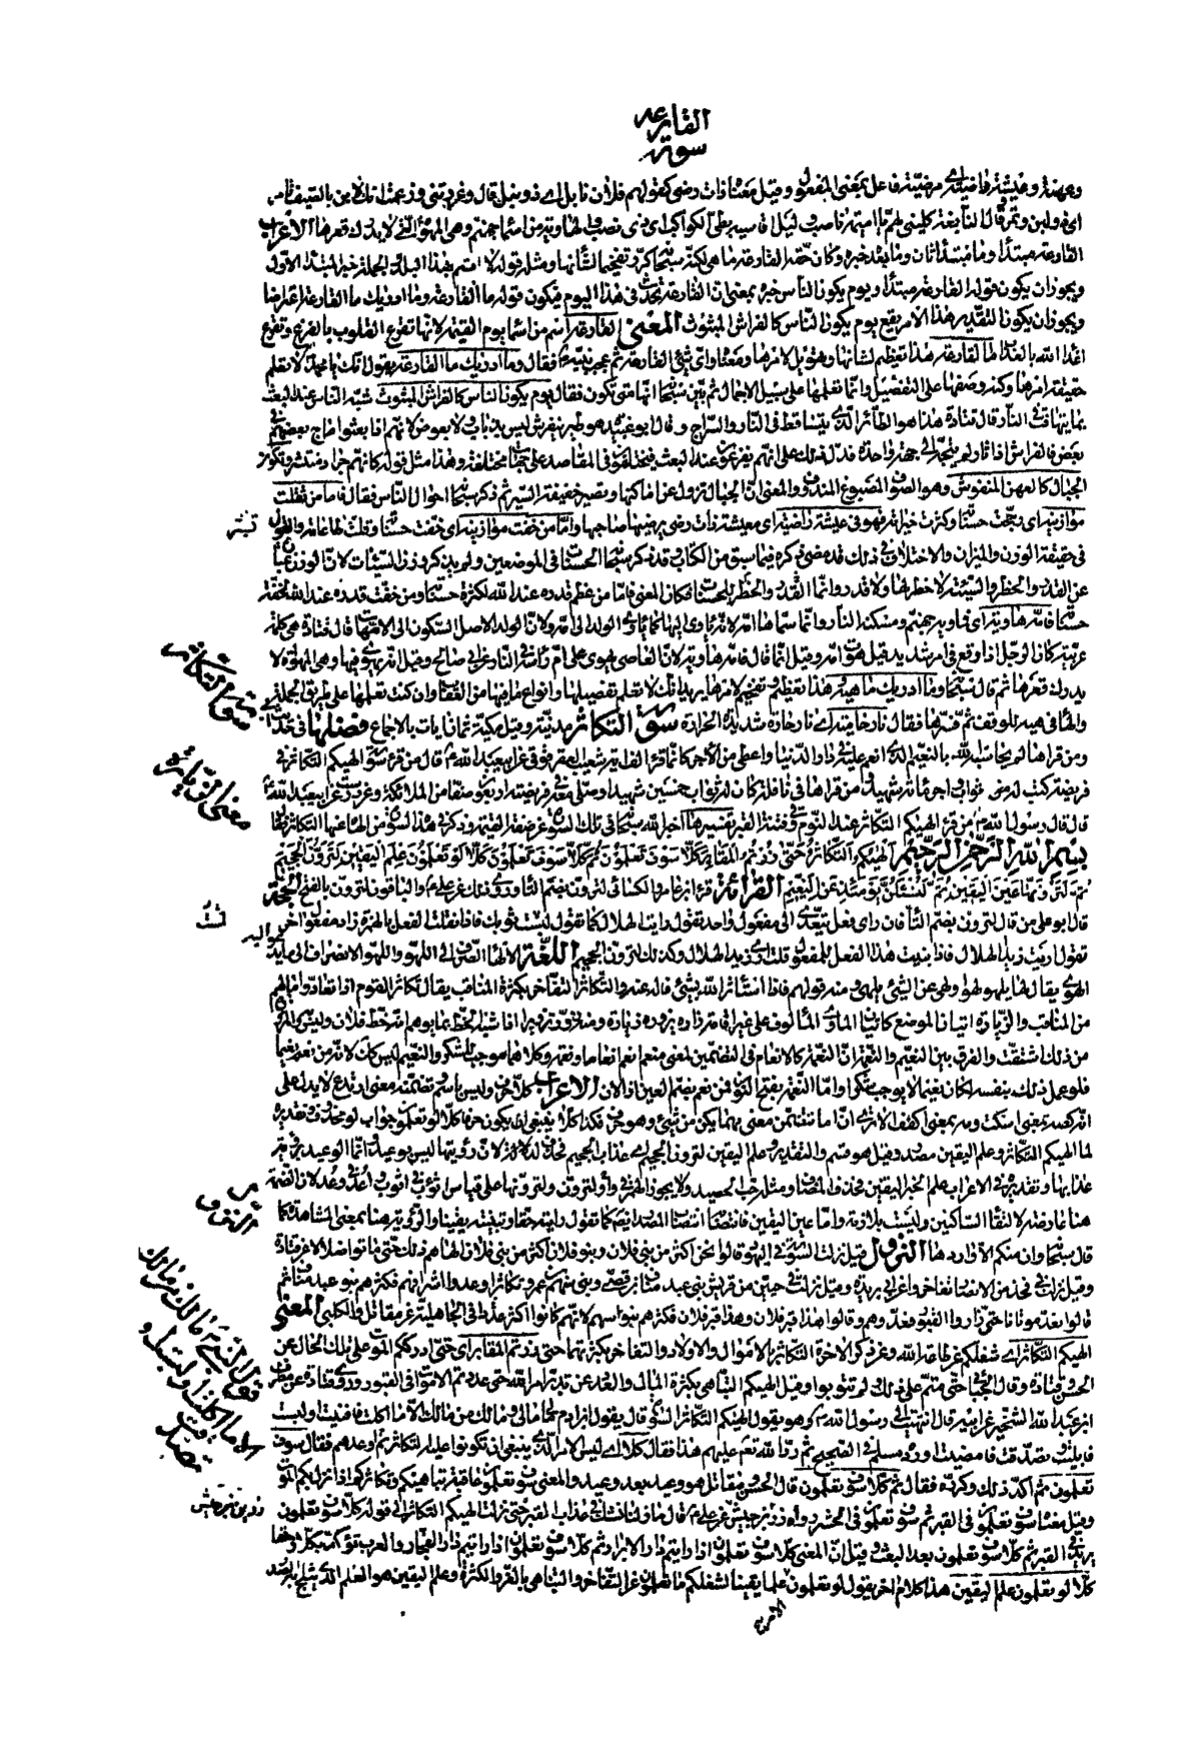 القارعة
سورة
وعيشة راضية اى مرضية فاعل بمعنى المفعول وقيل معناه ذات رضى كقولهم فلان نابل اى ذو نبل قال وغررتنى وزعمت انك لابن بالصيف تامر
اى ذو لبن وتمر وقال النابغة كلينى لهم يا اميمة ناصب وليل اقاسيه بطىء الكواكب اى ذى نصب وهاوية من اسماء جهنم وهى المهواة التى لا يدرك قعرها الاعراب
القارعة مبتدأ وما مبتدأ ثان وما بعده خبره وكان حقه القارعة ما هى لكنه سبحانه كرر تفخيما لشأنها ومثله قوله لا اقسم بهذا البلد الجملة خبر المبتدأ الاول
ويجوز ان يكون قوله القارعة مبتدأ ويوم يكون الناس خبره بمعنى ان القارعة تحدث فى هذا اليوم فيكون قوله ما القارعة وما ادريك ما القارعة اعتراضا
ويجوز ان يكون التقدير هذا الامر يقع يوم يكون الناس كالفراش المبثوث المعنى القارعة اسم من اسماء يوم القيمة لانها تقرع القلوب بالفزع وتقرع
اعداء الله بالعذاب ما القارعة هذا تعظيم لشانها وتهويل لامرها ومعناه واى شىء القارعة ثم عجب نبيه فقال وما ادريك ما القارعة يقول انك يا محمد لا تعلم
حقيقة امرها وكنه وصفها على التفصيل وانما تعلمها على سبيل الاجمال ثم بين سبحانه انها متى تكون فقال يوم يكون الناس كالفراش المبثوث شبه الناس عند البعث
بما يتهافت فى النار قال قتادة هذا هو الطائر الذى يتساقط فى النار والسراج وقال ابو عبيدة هو طير يتفرش ليس بذباب ولا بعوض لانهم اذا بعثوا ماج بعضهم فى
بعض فالفراش اذا ثار لم يتجه الى جهة واحدة فدل ذلك على انهم يفزعون عند البعث فيختلفون فى المقاصد على جهات مختلفة وهذا مثل قوله كانهم جراد منتشر وتكون
الجبال كالعهن المنفوش وهو الصوف المصبوغ المندوف والمعنى ان الجبال تزول عن اماكنها وتصير خفيفة السير ثم ذكر سبحانه احوال الناس فقال فاما من ثقلت
موازينه اى رجحت حسناته وكثرت خيراته فهو فى عيشة راضية اى معيشة ذات رضى يرضيها صاحبها واما من خفت موازينه اى خفت حسناته وقلت طاعاته والقول
فى حقيقة الوزن والميزان والاختلاف فى ذلك قد مضى ذكره فيما سبق من الكتاب وقد ذكر سبحانه الحسنات فى الموضعين ولم يذكر وزن السيئات لان الوزن عبارة
عن القدر والخطر والسيئة لا خطر لها ولا قدر وانما القدر والخطر للحسنات فكان المعنى فاما من عظم قدره عند الله لكثرة حسناته ومن خفت قدره عند الله لخفة
حسناته فامه هاوية اى فماويه جهنم ومسكنه النار وانما سماها امه لانه ياوى اليها كما ياوى الولد الى امه ولان الولد الاصل السكون الى الامهات قال قتادة هى كلمة
عربية كان الرجل اذا وقع فى امر شديد قيل هوت امه وقيل انما قال فامه هاوية لان العاصى يهوى على ام راسه فى النار عن ابى صالح وقيل انه يهوى فيها وهى المهواة لا
يدرك قعرها ثم قال سبحانه وما ادريك ما هيه هذا تعظيم وتفخيم لامرها يريد انك لا تعلم تفصيلها وانواع ما فيها من العقاب وان كنت تعلمها على طريق الجملة
والهاء فى هيه للوقف ثم فسرها فقال نار حامية اى نار حارة شديدة الحرارة سورة التكاثر مدنية وقيل مكية ثمانى ايات بالاجماع فضلها
ومن قراها لم يحاسبه الله بالنعيم الذى انعم عليه فى دار الدنيا واعطى من الاجر كانما قرا الف اية شعيب العقرقوفى عن ابى عبد الله قال من قرا سورة الهيكم التكاثر فى
فريضة كتب له ثواب اجر مائة شهيد ومن قراها فى نافلة كان له ثواب خمسين شهيدا وصلى معه فى فريضته اربعون صفا من الملائكة
قال قال رسول الله من قرا الهيكم التكاثر عند النوم وقى فتنة القبر تفسيرها
بسم الله الرحمن الرحيم الهيكم التكاثر حتى زرتم المقابر كلا سوف تعلمون ثم كلا سوف تعلمون كلا لو تعلمون علم اليقين لترون الجحيم
ثم لترونها عين اليقين ثم لتسئلن يومئذ عن النعيم القراءة قرا ابن عامر والكسائى لترون بضم التاء وروى ذلك عن على والباقون لترون بالفتح الحجة
قال ابو على من قال لترون بضم التاء فان راى فعل يتعدى الى مفعول واحد تقول رايت الهلال كما تقول لبست ثوبك فاذا نقلت الفعل بالهمزة زاد مفعول اخر
تقول اريت زيدا الهلال فاذا بنيت هذا الفعل للمفعول قلت ارى زيد الهلال وكذلك لترون الجحيم اللغة الالهاء الصرف الى اللهو واللهو الانصراف الى ما يدعو اليه
الهوى يقال لها يلهو لهوا ولهى عن الشىء يلهى ومنه قولهم فاذا استأثر الله بشىء فاله عنه والتكاثر التفاخر بكثرة المناقب يقال تكاثر القوم اذا تعادوا ما لهم
من المناقب والزيارة اتيان الموضع
من ذلك اشتقت والفرق بين النعيم والنعمة ان النعمة كالانعام فى التضمين لمعنى منعم انعم انعاما ونعمة وكلاهما موجب الشكر والنعيم ليس كذلك لانه من نعم نعيما
فلو عمل ذلك بنفسه لكان نعيما لا يوجب شكرا واما النعمة بفتح النون فمن نعم بضم العين اذا لان الاعراب كلا حرف وليس باسم وتضمنه معنى ارتدع لا يدل على
انه كصه بمعنى اسكت ومه بمعنى اكفف الا ترى ان اما تتضمن معنى مهما يكن من شىء وهو حرف فكذا كلا ينبغى ان يكون حرفا كلا لو تعلمون جواب لو محذوف وتقديره
لما الهيكم التكاثر وعلم اليقين مصدر وقيل هو قسم والتقدير وعلم اليقين لترون الجحيم اى عذاب الجحيم لان رؤيتها ليس بوعيد وانما الوعيد برؤية
عذابها وتقديره فى الاعراب علم الخبر اليقين فحذف المضاف ومثله حب الحصيد ولا يجوز الهمز فى واو لترون ولترونها على قياس اثؤب فى اثوب اعد فى وعد لان الضمة
هنا عارضة لالتقاء الساكنين وليست بلازمة واما عين اليقين فانتصابه انتصاب المصدر كما تقول رايته حقا وتبينته يقينا والرؤية هنا بمعنى المشاهدة كما
قال سبحانه وان منكم الا واردها النزول قيل نزلت السورة فى اليهود قالوا نحن اكثر من بنى فلان وبنو فلان اكثر من بنى فلان الهاهم ذلك حتى ماتوا ضلالا عن قتادة
وقيل نزلت فى فخذ من الانصار تفاخروا عن ابى بريدة وقيل نزلت فى حيين من قريش بنى عبد مناف بن قصى وبنى سهم بن عمرو تكاثروا وعدوا اشرافهم فكثرهم بنو عبد مناف ثم
قالوا نعد موتانا حتى زاروا القبور فعدوهم وقالوا هذا قبر فلان وهذا قبر فلان فكثرهم بنو سهم لانهم كانوا اكثر عددا فى الجاهلية عن مقاتل والكلبى المعنى
الهيكم التكاثر اى شغلكم عن طاعة الله وعن ذكر الاخرة التكاثر بالاموال والاولاد والتفاخر بكثرتها حتى زرتم المقابر اى حتى ادرككم الموت على تلك الحال عن
الحسن وقتادة وقال الجبائى حتى متم على ذلك ولم تتوبوا وقيل الهيكم التباهى بكثرة المال والعدد عن تدبر امر الله حتى عددتم الاموات فى القبور وروى قتادة عن مطرف
ابن عبد الله الشخير عن ابيه قال انتهيت الى رسول الله وهو يقول الهيكم التكاثر السورة قال يقول ابن ادم مالى مالى وما لك من مالك الا ما اكلت فافنيت او لبست
فابليت او تصدقت فامضيت اورده مسلم فى الصحيح ثم رد الله تعالى عليهم هذا فقال كلا اى ليس الامر الذى ينبغى ان تكونوا عليه التكاثر ثم اوعدهم فقال سوف
تعلمون ثم اكد ذلك وكرره فقال ثم كلا سوف تعلمون قال الحسن ومقاتل هو وعيد بعد وعيد والمعنى سوف تعلمون عاقبة تباهيكم وتكاثركم اذا نزل بكم الموت
وقيل معناه سوف تعلمون فى القبر ثم سوف تعلمون فى الحشر رواه زر بن حبيش عن على قال ما زلنا نشك فى عذاب القبر حتى نزلت الهيكم التكاثر الى قوله كلا سوف تعلمون
يريد فى القبر ثم كلا سوف تعلمون بعد البعث وقيل ان المعنى كلا سوف تعلمون اذا رايتم دار الابرار ثم كلا سوف تعلمون اذا رايتم دار الفجار والعرب تؤكد بكلا وحقا
كلا لو تعلمون علم اليقين هذا كلام اخر يقول لو تعلمون علما يقينا لشغلكم ما تعلمون عن التفاخر والتباهى بالعز والكثرة وعلم اليقين هو العلم الذى يثلج به الصدر
سورة التكاثر
النزول